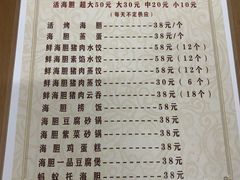 活海胆 超大50元 大30元 中20元 小10元
(每天不定供应)
活烤海胆——38元/个
海胆蒸蛋——38元/个
鲜海胆猪肉水饺——58元(12个)
鲜海胆素馅水饺——58元(12个)
鲜海胆猪肉蒸饺——58元(12个)
鲜海胆猪肉蒸饺——30元(6个)
鲜海胆猪肉云吞——38元(18个)
海胆捞饭——58元
海胆豆腐砂锅——38元
海胆紫菜砂锅——38元
海胆鸡蛋糕——38元
海胆一品豆腐煲——38元
蚂蚁托海胆——38元